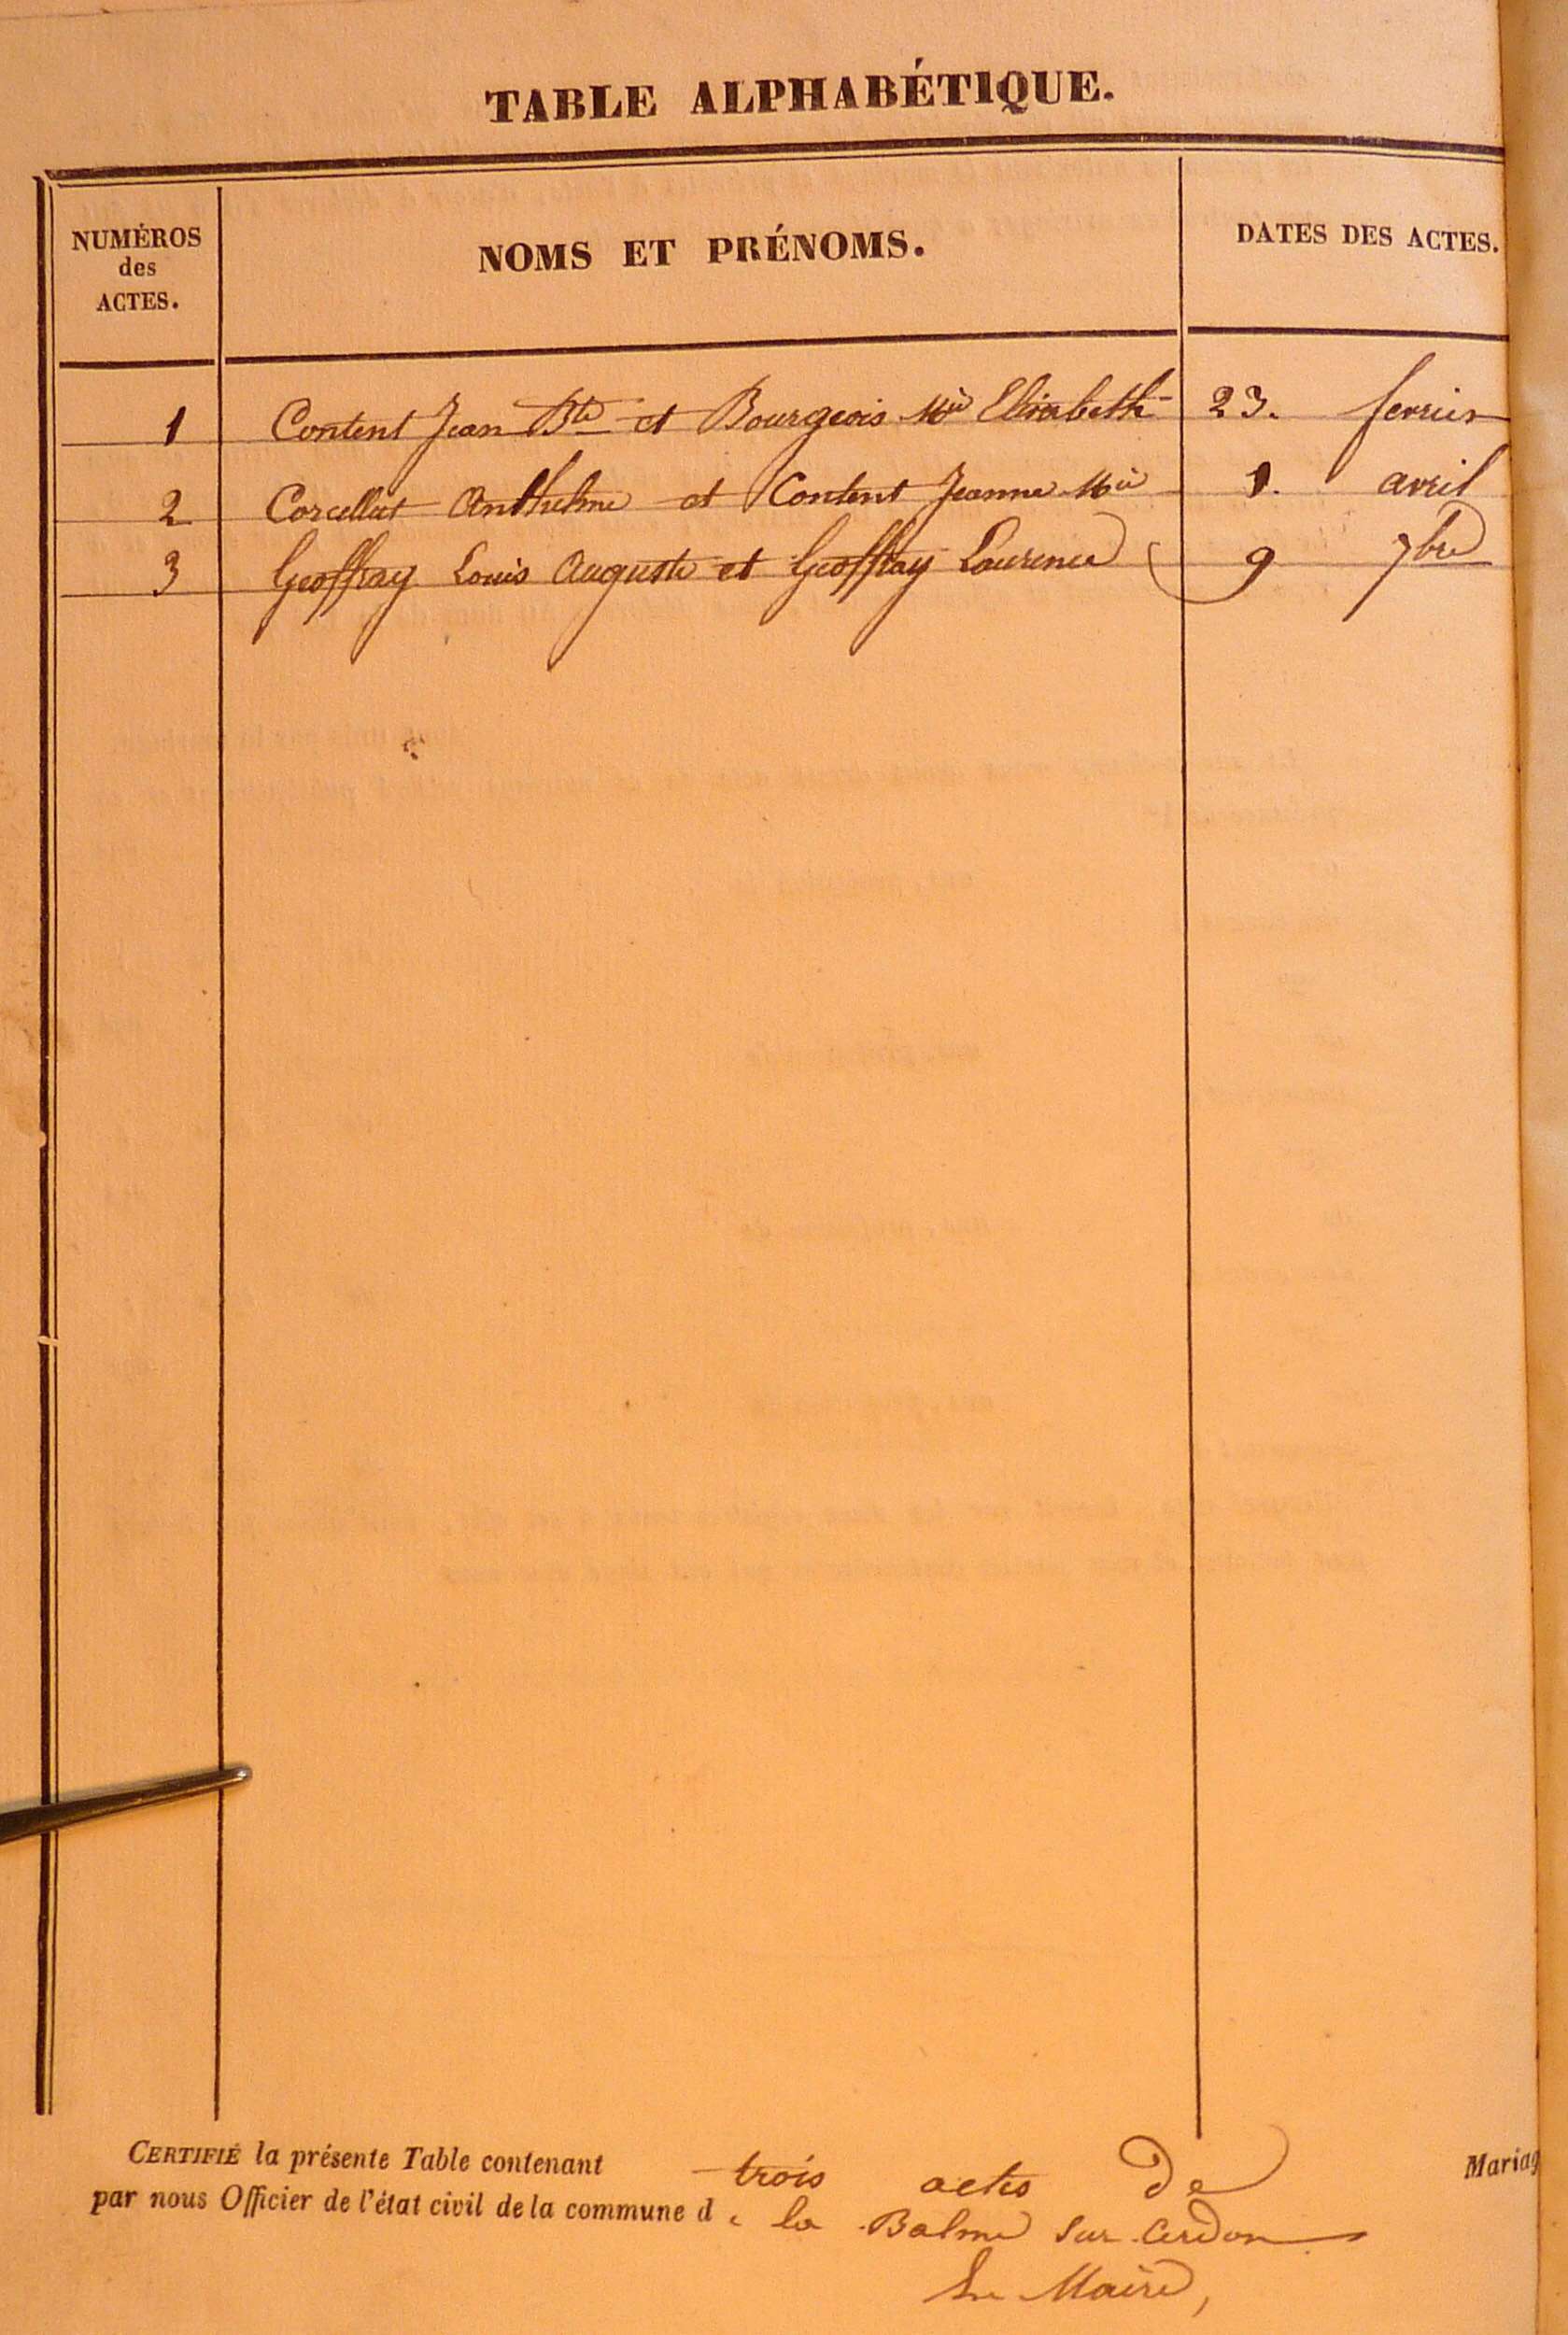 TABLE ALPHABÉTIQUE.
NUMÉROS
des
ACTES.
NOMS ET PRÉNOMS.
DATES DES ACTES.
1 Content Jean Bte et Bourgeois Mie Elisabeth 23. fevrier
2 Corcellut Anthelme et Content Jeanne Mie 1. avril
3 Geoffray Louis Auguste et Geoffray Laurence 9 7bre
CERTIFIÉ la présente Table contenant trois actes de Mariag
par nous Officier de l'état civil de la commune de la Balme sur Cerdon
Le Maire,